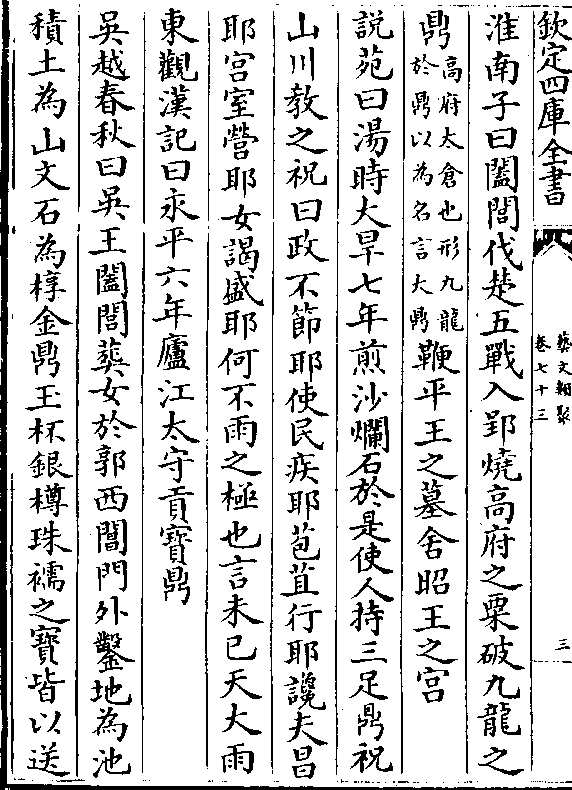 欽定四庫全書
藝文類聚
卷七十三
三
淮南子曰闔閭伐楚五戰入郢燒高府之粟破九龍之
鼎高府太倉也形九龍
於鼎以為名言大鼎鞭平王之墓舍昭王之宫
説苑曰湯時大旱七年煎沙爛石於是使人持三足鼎祝
山川教之祝曰政不節耶使民疾耶苞苴行耶讒夫昌
耶宫室營耶女謁盛耶何不雨之極也言未已天大雨
東觀漢記曰永平六年廬江太守貢寶鼎
吳越春秋曰吳王闔閭葬女於郭西閶門外鑿地為池
積土為山文石為椁金鼎玉杯銀樽珠襦之寶皆以送